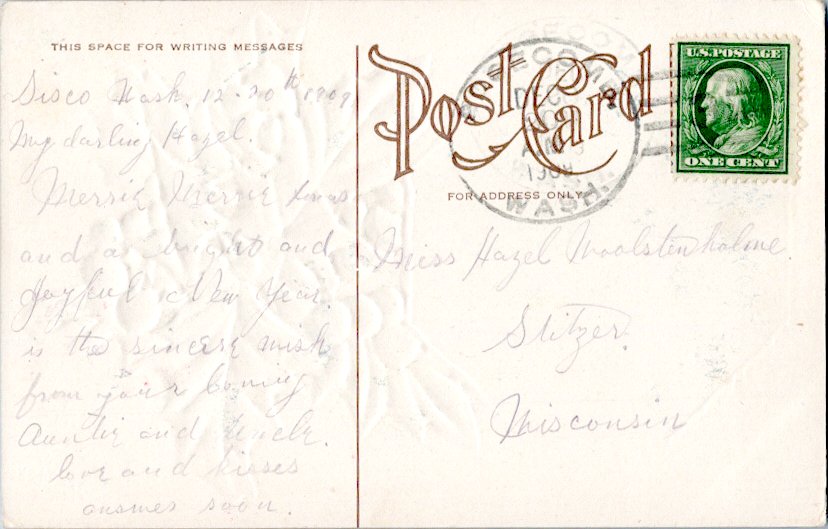 THIS SPACE FOR WRITING MESSAGES
Sisco Wash. 12-20th 1909
My darling Hazel.
Merrie Merrie Xmas
and a bright and
Joyful New Year.
is the sincere wish
from your loving
Auntie and Uncle.
love and kisses
answer soon.
Post Card
DEC
1909
WASH.
FOR ADDRESS ONLY
U.S. POSTAGE
ONE CENT
Miss Hazel Woolstenholme
Stitzer.
Wisconsin